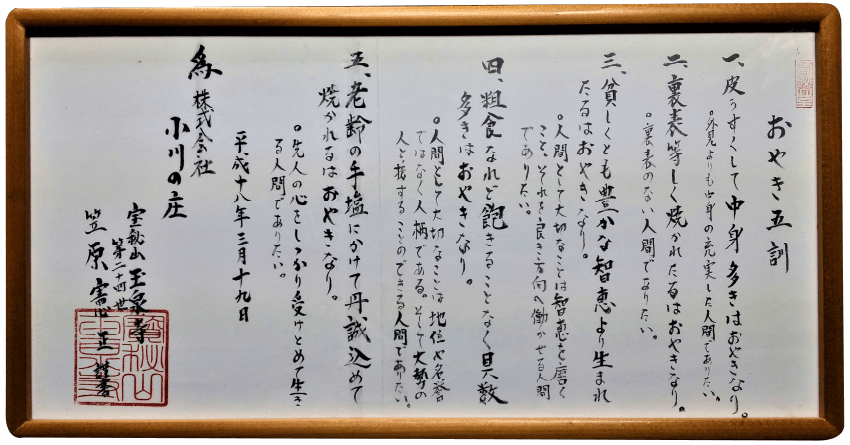 おやき五訓
一、皮うすくして中身多きはおやきなり。
。外見よりも中身の充実した人間でありたい。
二、裏表等しく焼かれたるはおやきなり。
。裏表のない人間でありたい。
三、貧しくとも豊かな智恵より生まれ
たるはおやきなり。
。人間として大切なことは智恵を磨く
こと、それを良き方向へ働かせる人間
でありたい。
四、粗食なれど飽きることなく具数
多きはおやきなり。
。人間として大切なことは地位や名誉
ではなく人柄である。そして大勢の
人と接することのできる人間でありたい。
五、老齢の手塩にかけて丹誠込めて
焼かれるはおやきなり。
。先人の心をしっかり受けとめて生き
る人間でありたい。
平成十八年三月十九日
為 株式会社
小川の庄
宝秘山 玉泉寺
第二十四世
笠原憲正